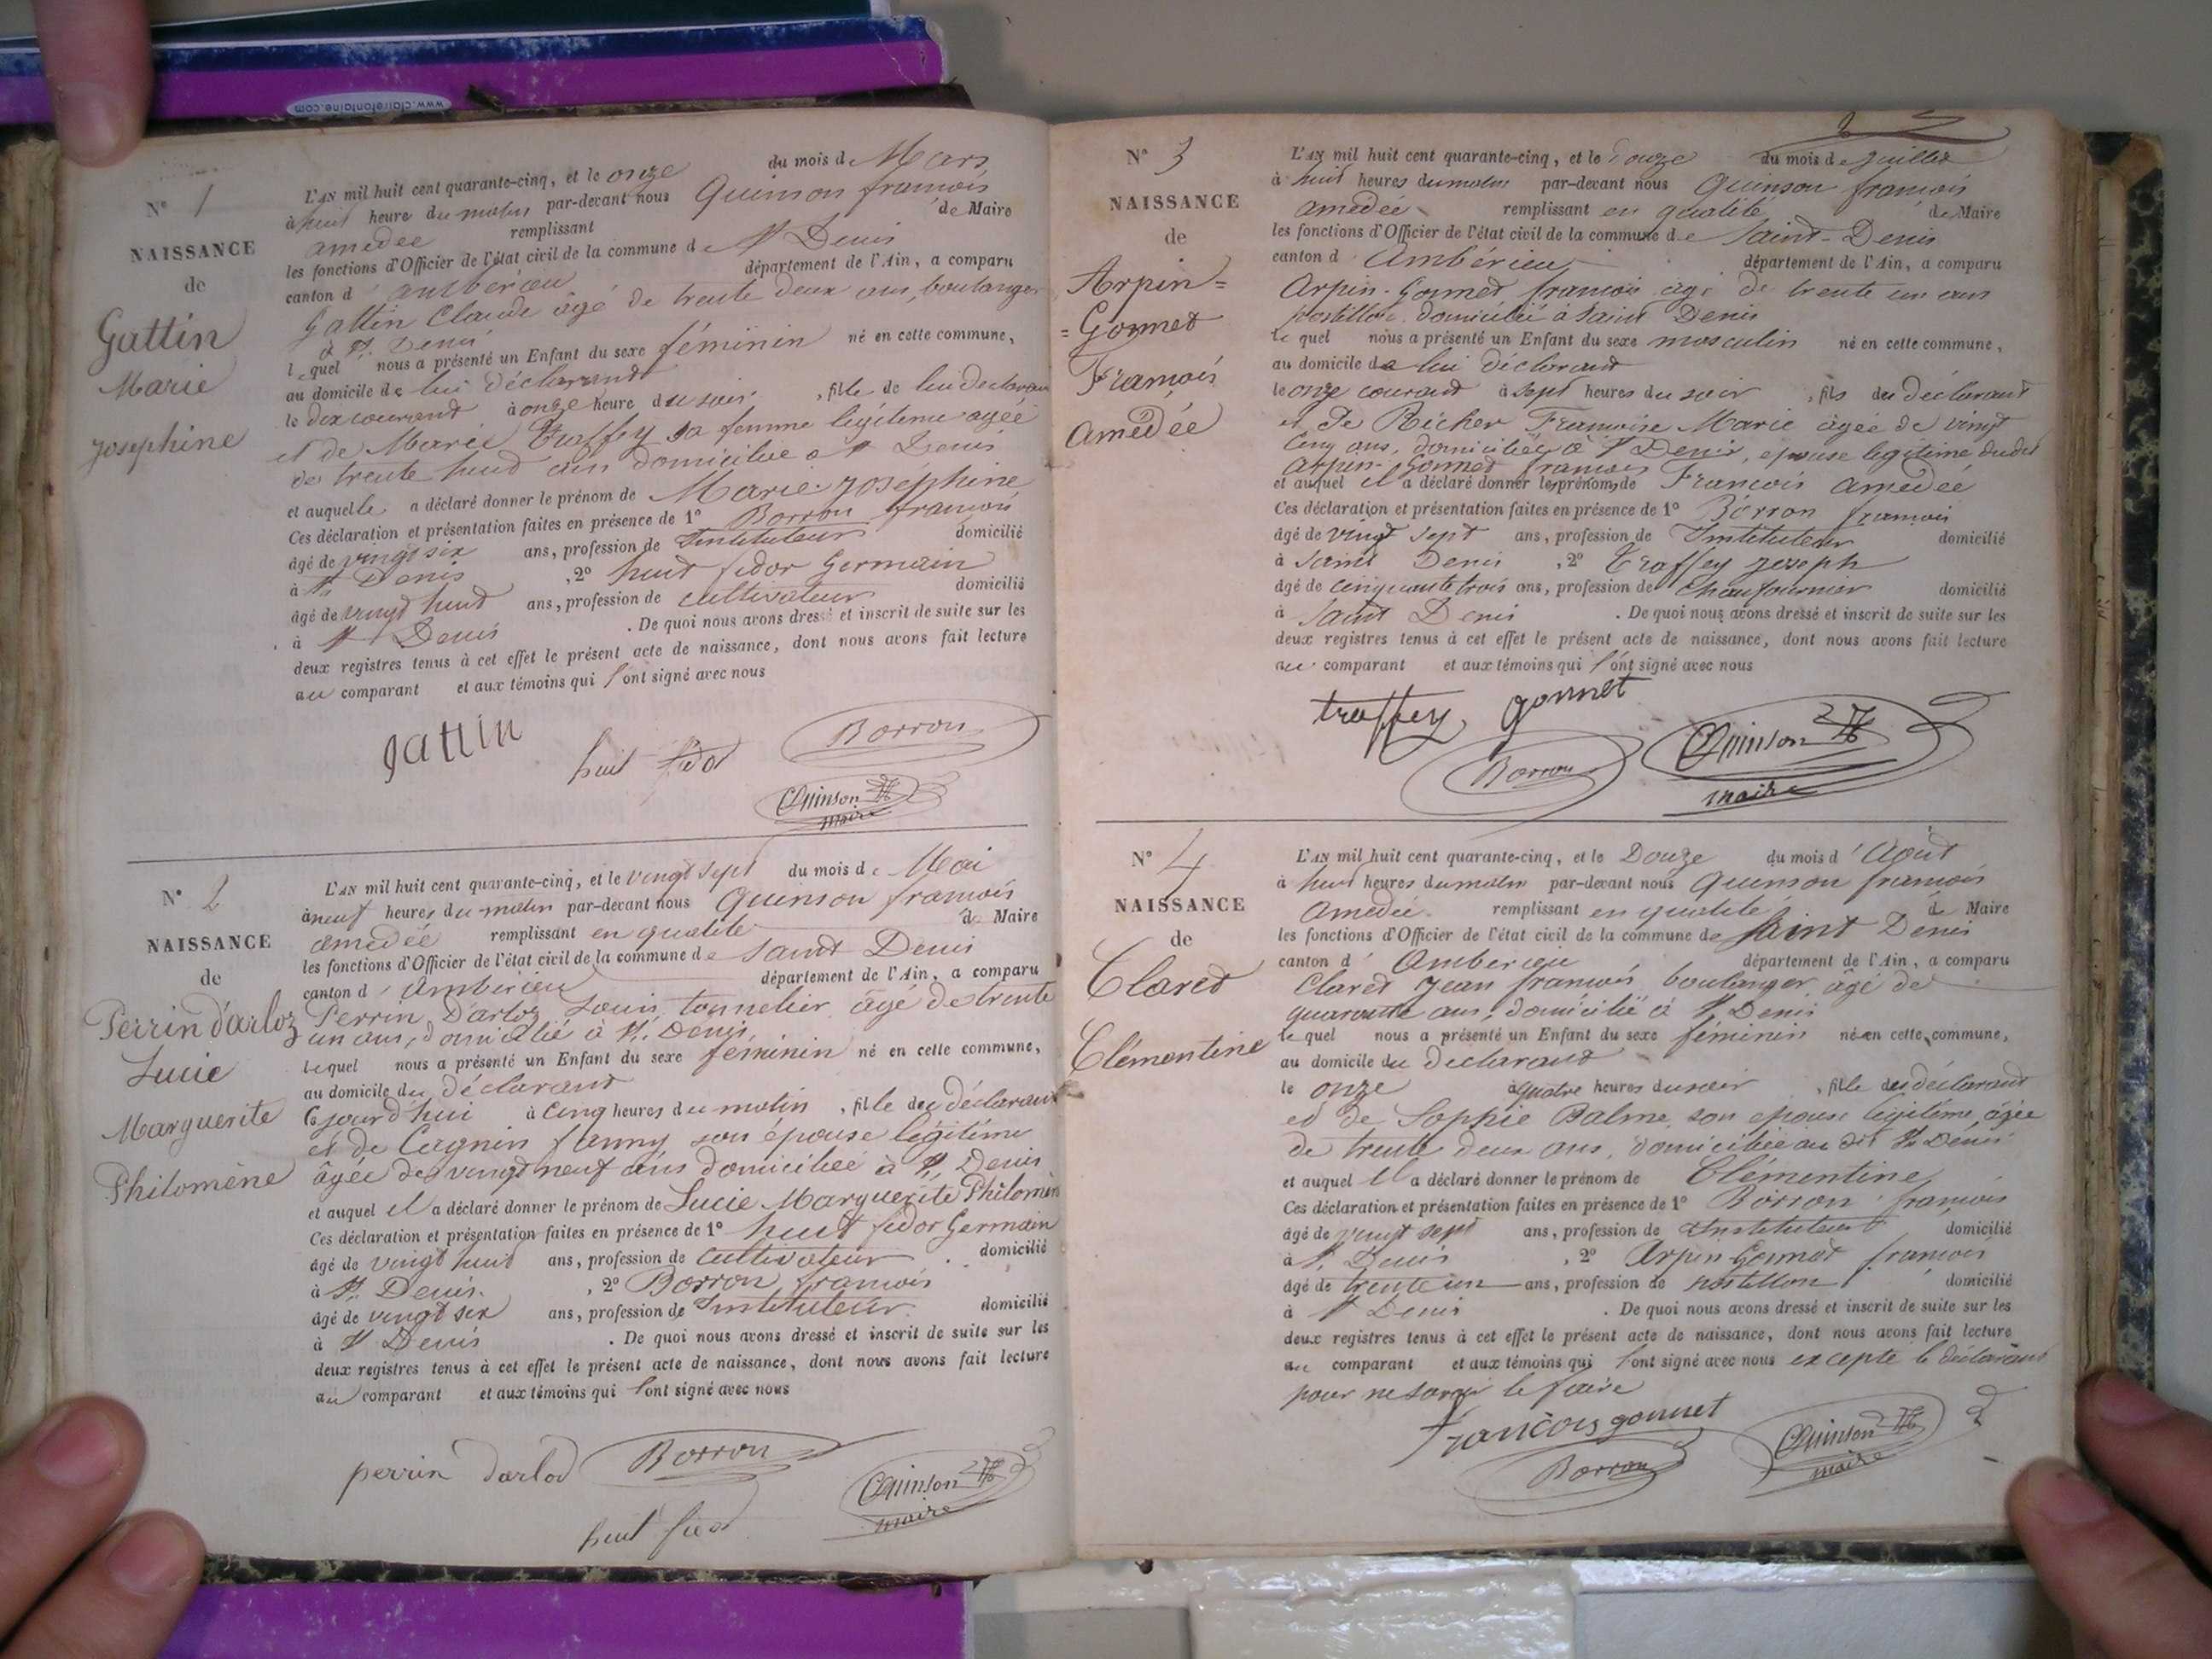 www.clairefontaine.com
N° 1
NAISSANCE
de
Gattin
Marie
Josephine
L'AN mil huit cent quarante-cinq, et le onze du mois de Mars
à huit heure du matin par-devant nous Quinson françois
amedée remplissant de Maire
les fonctions d'Officier de l'état civil de la commune de St Denis
canton d'ambérieu département de l'Ain, a comparu
Gattin Claude âgé de trente deux ans, boulanger
à St. Denis
lequel nous a présenté un Enfant du sexe féminin né en cette commune,
au domicile de lui déclarant
le dix courant à onze heure du soir, fille de lui declarant
et de Marie Traffey sa femme légitime agée
de trente huit ans domiciliée a St Denis
et auquelle a déclaré donner le prénom de Marie Joséphine
Ces déclaration et présentation faites en présence de 1° Borron françois
âgé de vingt six ans, profession de Instituteur domicilié
à St. Denis, 2° huit fidor Germain
âgé de vingt huit ans, profession de cultivateur domicilié
à St Denis. De quoi nous avons dressé et inscrit de suite sur les
deux registres tenus à cet effet le présent acte de naissance, dont nous avons fait lecture
au comparant et aux témoins qui l'ont signé avec nous
gattin
huit fidor
Borron
Quinson
maire
N° 2
NAISSANCE
de
Perrin d'arloz
Lucie
Marguerite
Philomène
L'AN mil huit cent quarante-cinq, et le vingt sept du mois de Mai
à neuf heures du matin par-devant nous Quinson françois
amédée remplissant en qualité de Maire
les fonctions d'Officier de l'état civil de la commune de Saint Denis
canton d'ambérieu département de l'Ain, a comparu
Perrin D'arloz Louis, tonnelier âgé de trente
un ans, domicilié à St. Denis,
lequel nous a présenté un Enfant du sexe féminin né en cette commune,
au domicile du déclarant
Cejourd'hui à cinq heures du matin, fille du déclarant
et de Cugnin fanny son épouse légitime
âgée de vingt neuf ans domiciliée à St. Denis
et auquel il a déclaré donner le prénom de Lucie Marguerite Philomèn
Ces déclaration et présentation faites en présence de 1° huit fidor Germain
âgé de vingt huit ans, profession de cultivateur domicilié
à St. Denis, 2° Borron françois
âgé de vingt six ans, profession de Instituteur domicilié
à St Denis. De quoi nous avons dressé et inscrit de suite sur les
deux registres tenus à cet effet le présent acte de naissance, dont nous avons fait lecture
au comparant et aux témoins qui l'ont signé avec nous
perrin darlod
Borron
huit fidor
Quinson
maire
N° 3
NAISSANCE
de
Arpin=
=Gonnet
François
Amédée
L'AN mil huit cent quarante-cinq, et le Douze du mois de Juillet
à huit heures du matin par-devant nous Quinson françois
amedée remplissant en qualité de Maire
les fonctions d'Officier de l'état civil de la commune de Saint-Denis
canton d'Ambérieu département de l'Ain, a comparu
Arpin-Gonnet françois âgé de trente un ans
postillon, domicilié à Saint Denis
lequel nous a présenté un Enfant du sexe masculin né en cette commune,
au domicile de lui déclarant
le onze courant à sept heures du soir, fils du déclarant
et de Richer Françoise Marie âgée de vingt
cinq ans, domiciliée à St Denis, epouse legitime dudit
Arpin-Gonnet françois
et auquel il a déclaré donner les prénoms de François amédée
Ces déclaration et présentation faites en présence de 1° Borron françois
âgé de vingt sept ans, profession de Instituteur domicilié
à Saint Denis, 2° Traffey Joseph
âgé de cinquante trois ans, profession de Chaufournier domicilié
à Saint Denis. De quoi nous avons dressé et inscrit de suite sur les
deux registres tenus à cet effet le présent acte de naissance, dont nous avons fait lecture
au comparant et aux témoins qui l'ont signé avec nous
traffey gonnet
Borron
Quinson
maire
N° 4
NAISSANCE
de
Claret
Clémentine
L'AN mil huit cent quarante-cinq, et le Douze du mois d'Août
à huit heures du matin par-devant nous Quinson françois
Amédée remplissant en qualité de Maire
les fonctions d'Officier de l'état civil de la commune de Saint Denis
canton d'Ambérieu département de l'Ain, a comparu
Claret Jean françois, boulanger âgé de
quarante ans, domicilié à St Denis
lequel nous a présenté un Enfant du sexe féminin né en cette commune,
au domicile du declarant
le onze à quatre heures du soir, fille du déclarant
et de Sophie Balme, son epouse légitime, âgée
de trente deux ans, domiciliée au dit St. Denis
et auquel il a déclaré donner le prénom de Clémentine
Ces déclaration et présentation faites en présence de 1° Borron françois
âgé de vingt sept ans, profession de Instituteur domicilié
à St. Denis, 2° Arpin Gonnet françois
âgé de trente un ans, profession de postillon domicilié
à St Denis. De quoi nous avons dressé et inscrit de suite sur les
deux registres tenus à cet effet le présent acte de naissance, dont nous avons fait lecture
au comparant et aux témoins qui l'ont signé avec nous excepté le déclarant
pour ne savoir le faire
françois gonnet
Borron
Quinson
maire